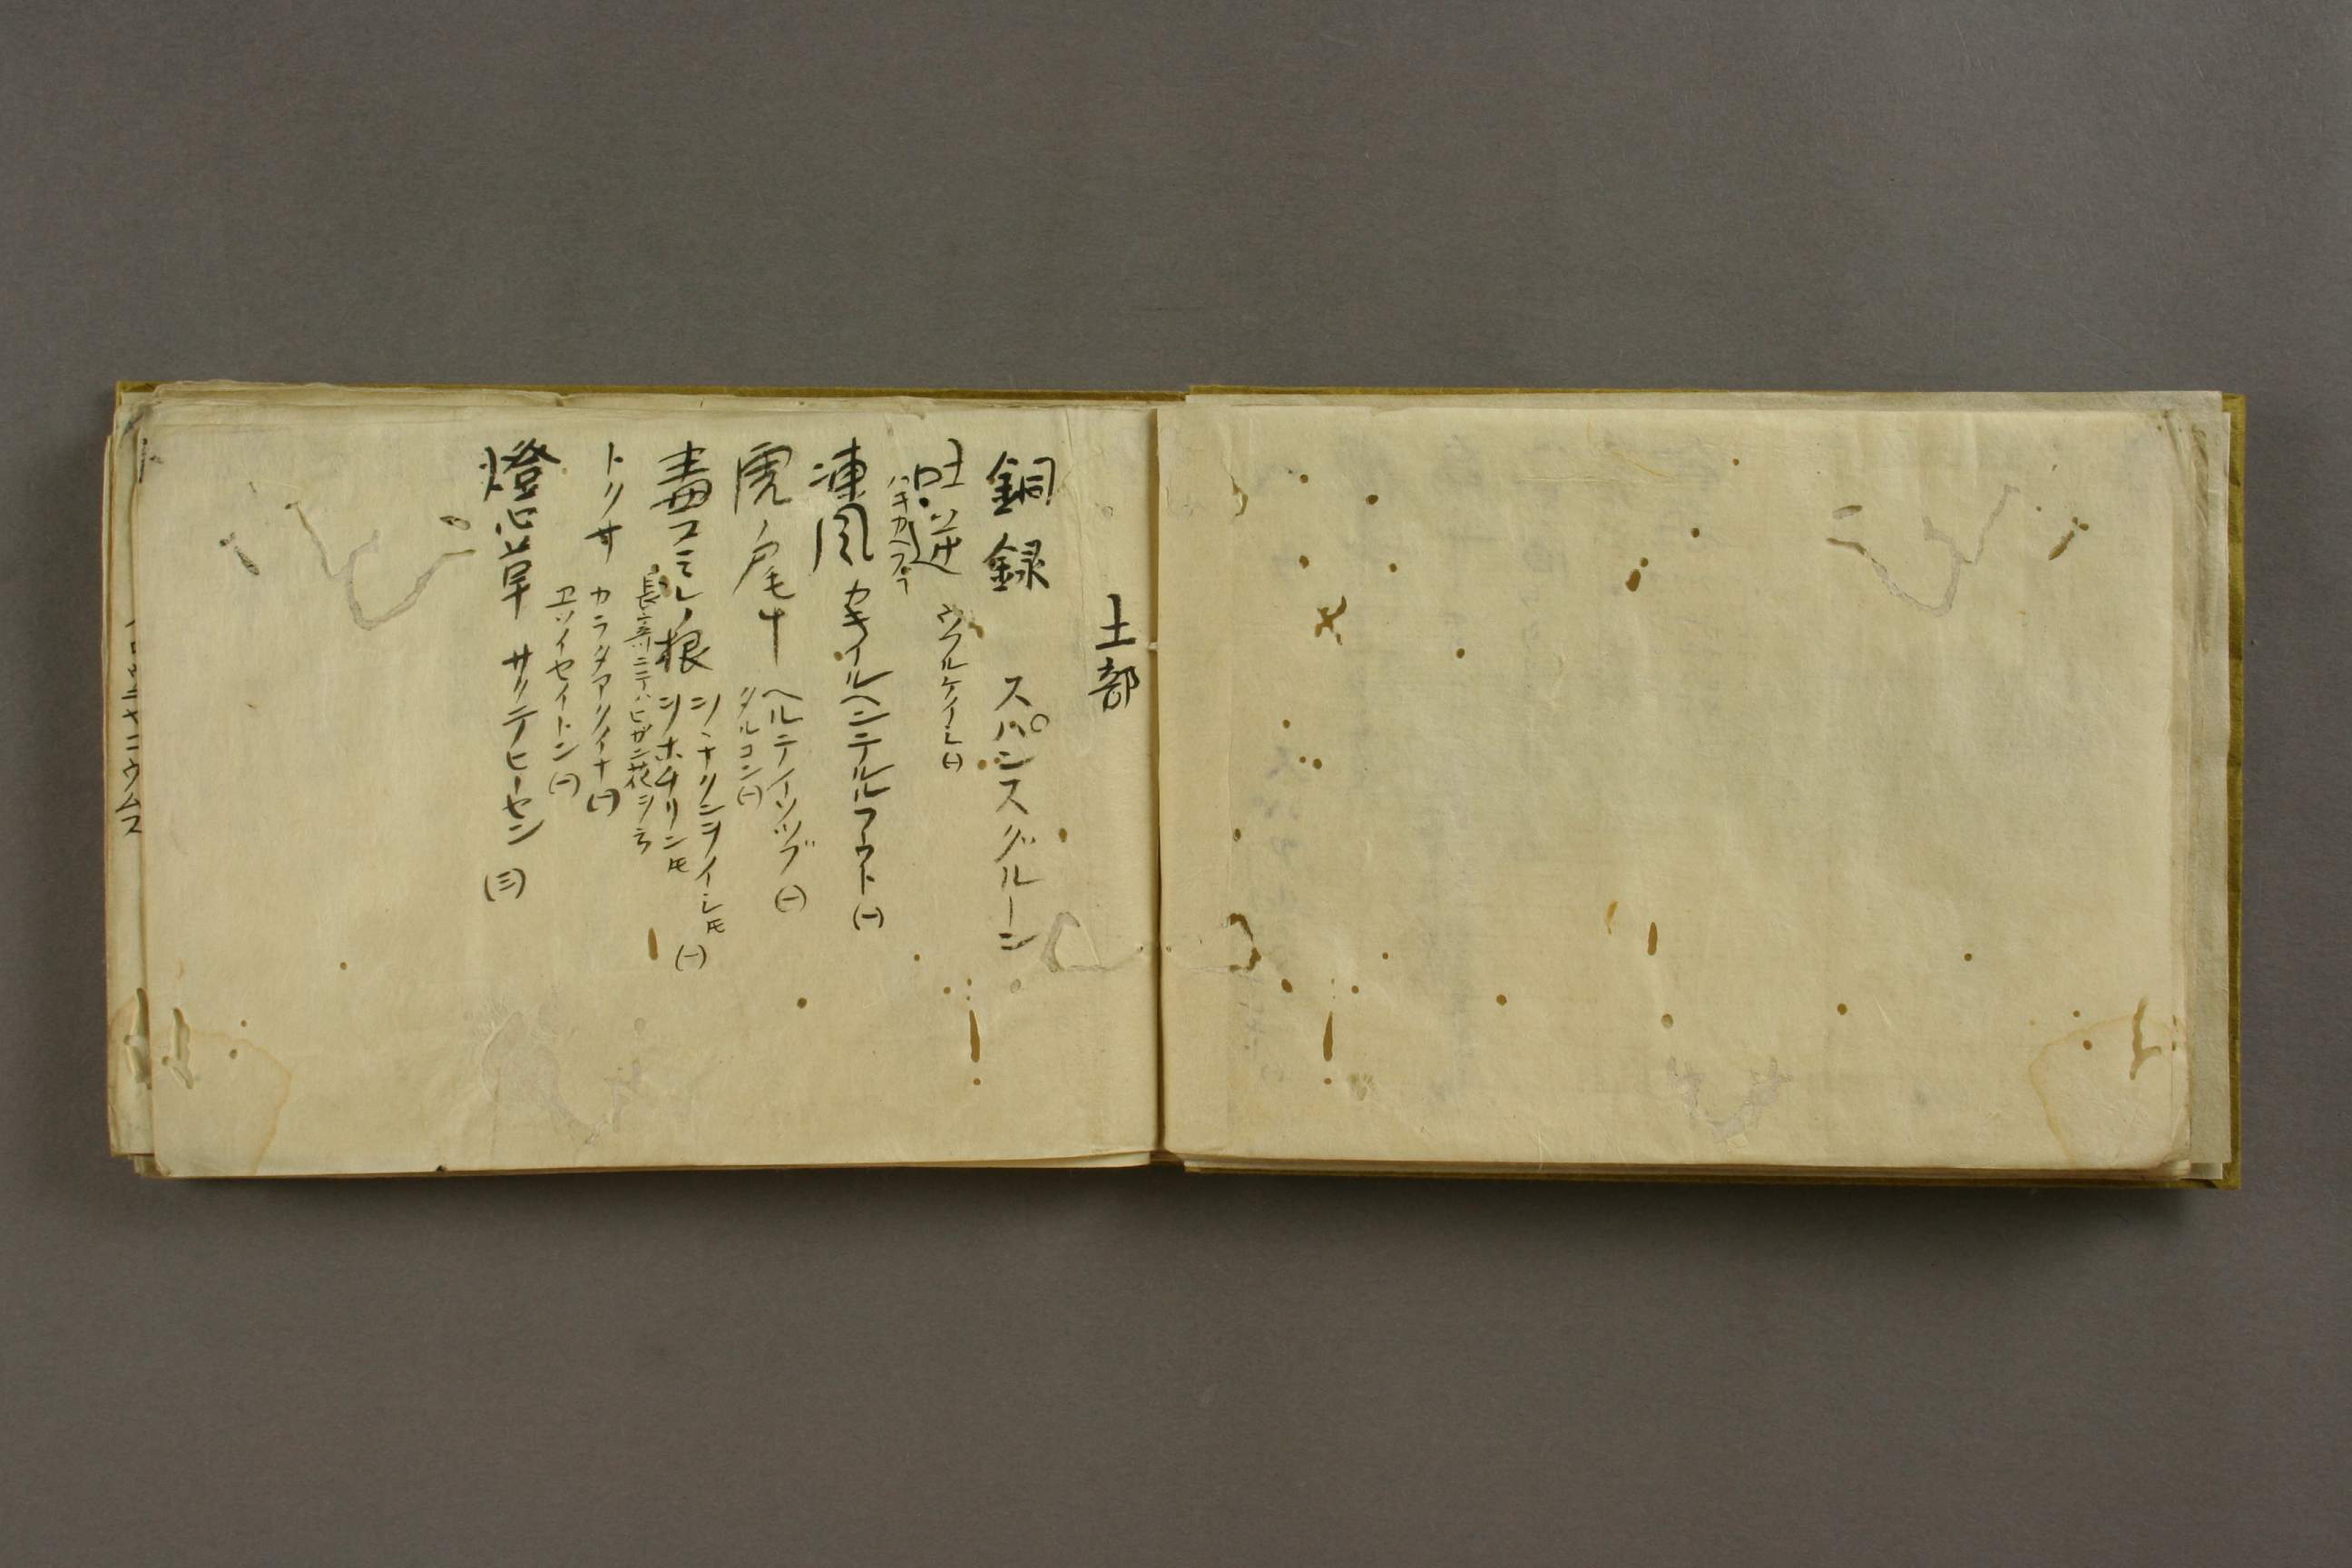 土部
銅録 スパシスグルーン
吐逆 ウフルケイレ(一)
ハキカヘス
凍風 カキイルヘンテルフウト(一)
虎ノ尾サ ヘルテイソツブ(一)
タルコン(一)
毒スミレノ根 シヽナリンヲイレ𪜈(一)
シホチリン𪜈
長嵜ニテハヒガン花
トクサ カラダアリイナ(一)
ヱソイセイトン(一)
燈心草 サクテヒーセン(三)